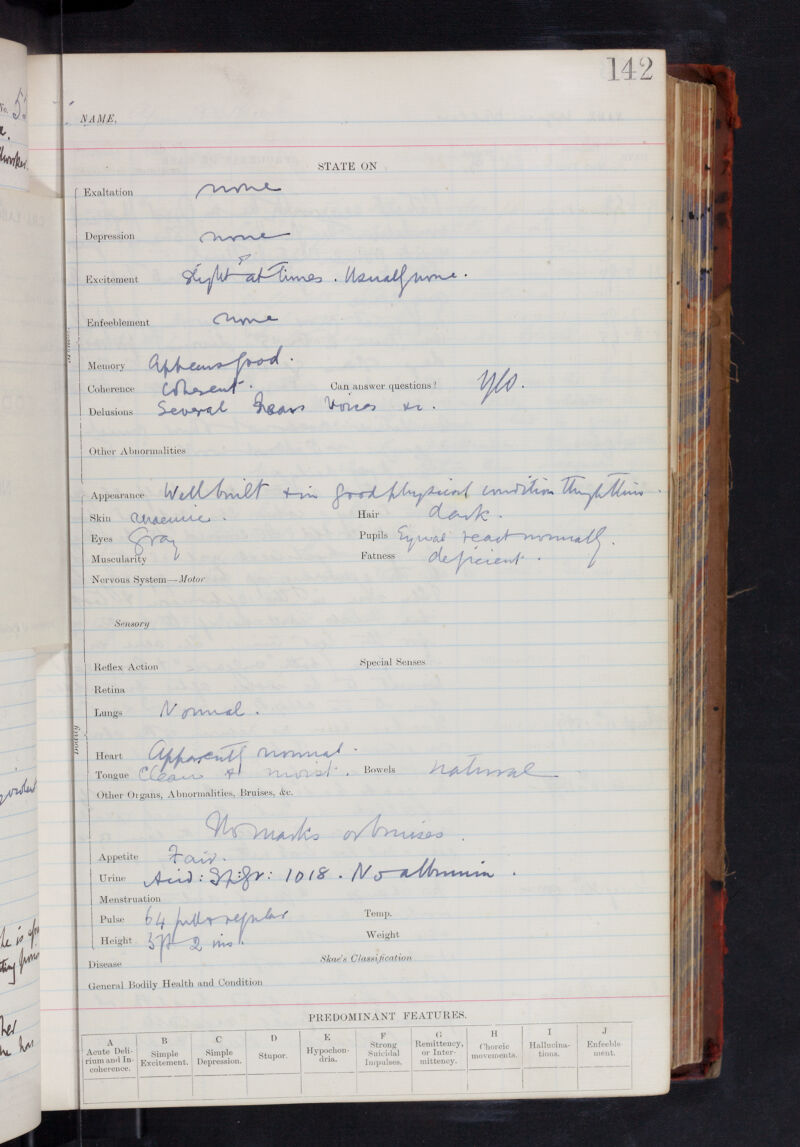 142
NAME.
STATE ON
Exaltation none
Depression none
Excitement Slight at times. Usually none.
Enfeeblement none
Memory Appears good.
Coherence Coherent. Can answer questions? Yes.
Delusions Several Hears Voices &c.
Other Abnormalities
Appearance Well built & in good physical condition though thin.
Skin anaemic. Hair dark.
Eyes Gray Pupils Equal react normally.
Muscularity Fatness deficient.
Nervous System—Motor
Sensory
Reflex Action Special Senses
Retina
Lungs Normal.
Bodily
Heart Apparently normal.
Tongue Clean & moist. Bowels natural
Other Organs, Abnormalities, Bruises, &c.
No marks or bruises.
Appetite Fair.
Urine Acid: Sp: gr: 1018. No albumin.
Menstruation
Pulse 64 full & regular Temp.
Height 5ft 2 ins. Weight
Disease Skae's Classification
General Bodily Health and Condition
PREDOMINANT FEATURES.
A B C D E F G H I J
Acute Delirium and Incoherence. Simple Excitement. Simple Depression. Stupor. Hypochondria. Strong Suicidal Impulses. Remittency, or Intermittency. Choreic movements. Hallucinations. Enfeeblement.